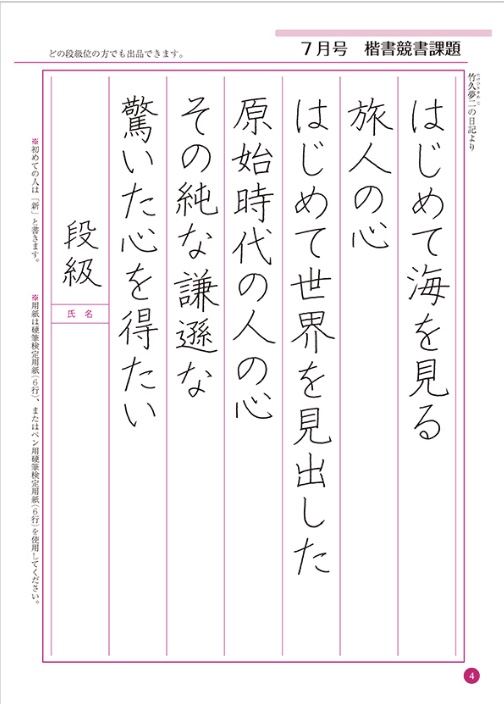 どの段級位の方でも出品できます。
7月号 楷書競書課題
竹久夢二の日記より
はじめて海を見る
旅人の心
はじめて世界を見出した
原始時代の人の心
その純な謙遜な
驚いた心を得たい
段級
氏名
※初めての人は「新」と書きます。
※用紙は硬筆検定用紙(6行)、またはペン用硬筆検定用紙(6行)を使用してください。
4